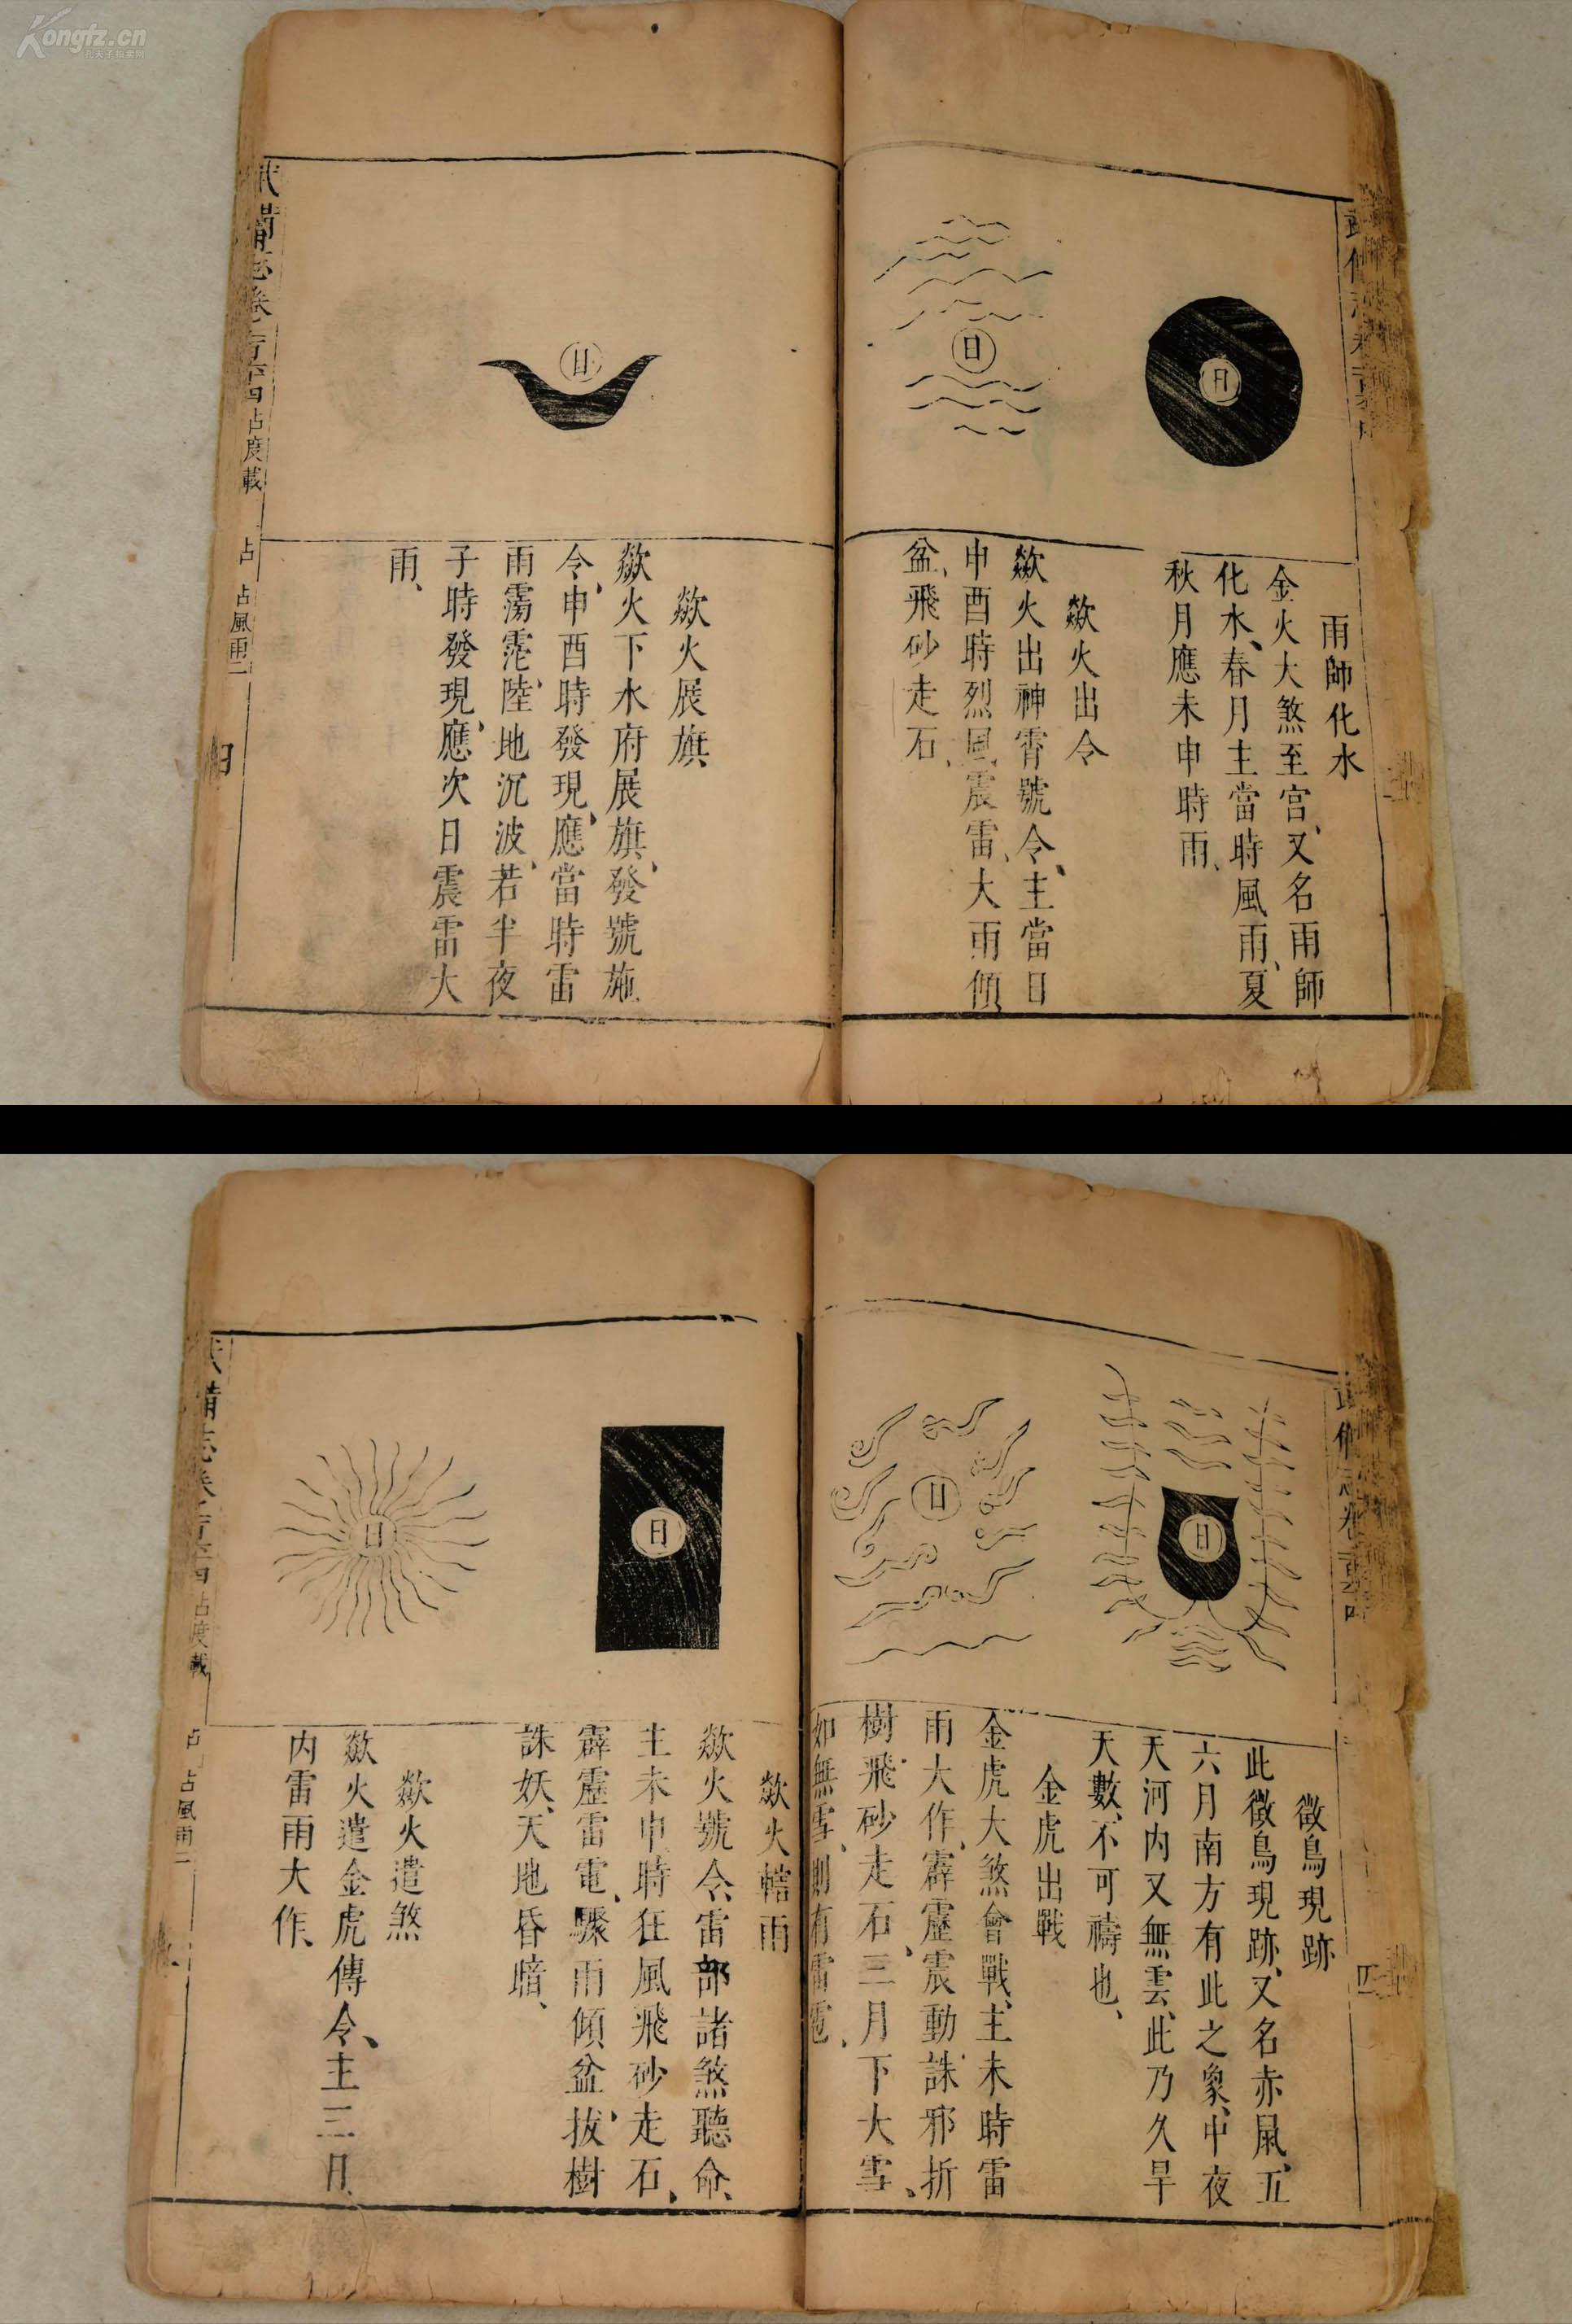 Kongfz.cn
雨師化水
金火大煞至宮、又名雨師
化水、春月主當時風雨、夏
秋月應未申時雨、
歘火出令
歘火出神霄號令、主當日
申酉時烈風震雷、大雨傾
盆、飛砂走石、
日
日
歘火展旗
歘火下水府展旗、發號施
令、申酉時發現、應當時雷
雨霶霓、陸地沉波、若半夜
子時發現、應次日震雷大
雨、
日
武備志卷
占度載
占
占風雨二
徵鳥現跡
此徵鳥現跡、又名赤鼠、五
六月南方有此之象、中夜
天河內又無雲、此乃久旱
天數、不可禱也、
金虎出戰
金虎大煞會戰、主未時雷
雨大作、霹靂震動、誅邪折
樹、飛砂走石、三月下大雪、
如無雪、則有雷雹、
日
日
四
歘火轄雨
歘火號令、雷部諸煞聽命、
主未申時狂風飛砂走石、
霹靂雷電、驟雨傾盆、拔樹
誅妖、天地昏暗、
歘火遣煞
歘火遣金虎傳令、主三日
內雷雨大作、
日
日
備志卷
占度載
占
占風雨二